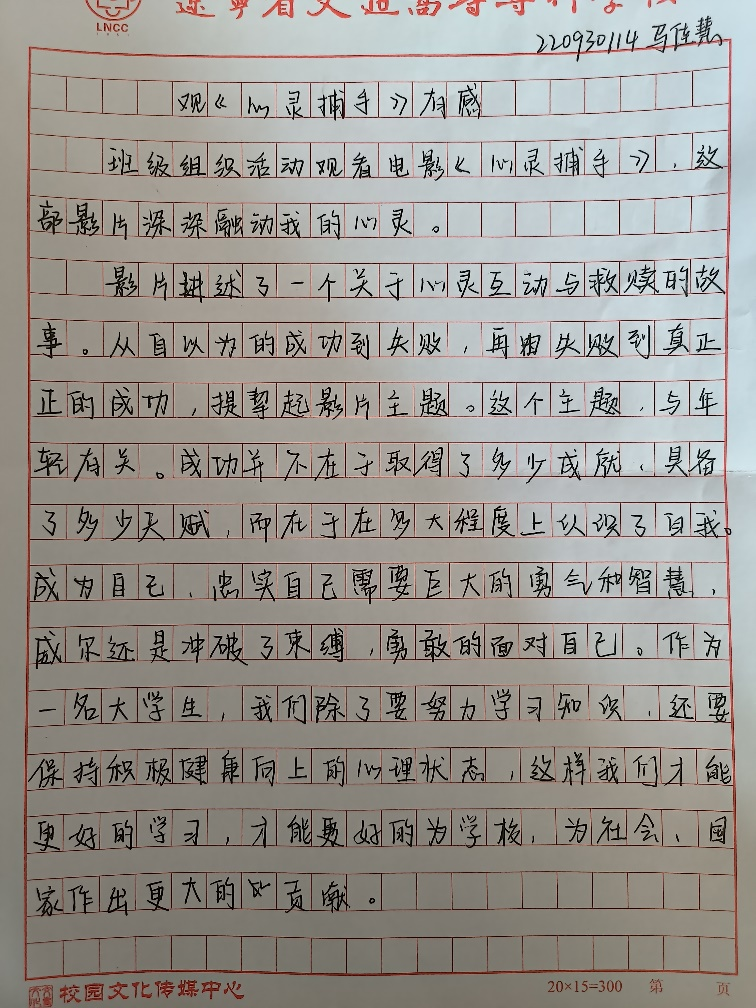 辽宁省交通高等专科学校
LNCC
220930114 马佳慧
观《心灵捕手》有感
班级组织活动观看电影《心灵捕手》，这
部影片深深融动我的心灵。
影片讲述了一个关于心灵互动与救赎的故
事。从自以为的成功到失败，再由失败到真正
正的成功，提挈起影片主题。这个主题，与年
轻有关。成功并不在于取得了多少成就，具备
了多少天赋，而在于在多大程度上认识了自我。
成为自己，忠实自己需要巨大的勇气和智慧，
威尔还是冲破了束缚，勇敢的面对自己。作为
一名大学生，我们除了要努力学习知识，还要
保持积极健康向上的心理状态，这样我们才能
更好的学习，才能更好的为学校，为社会、国
家作出更大的贡献。
校园文化传媒中心
20×15=300 第 页